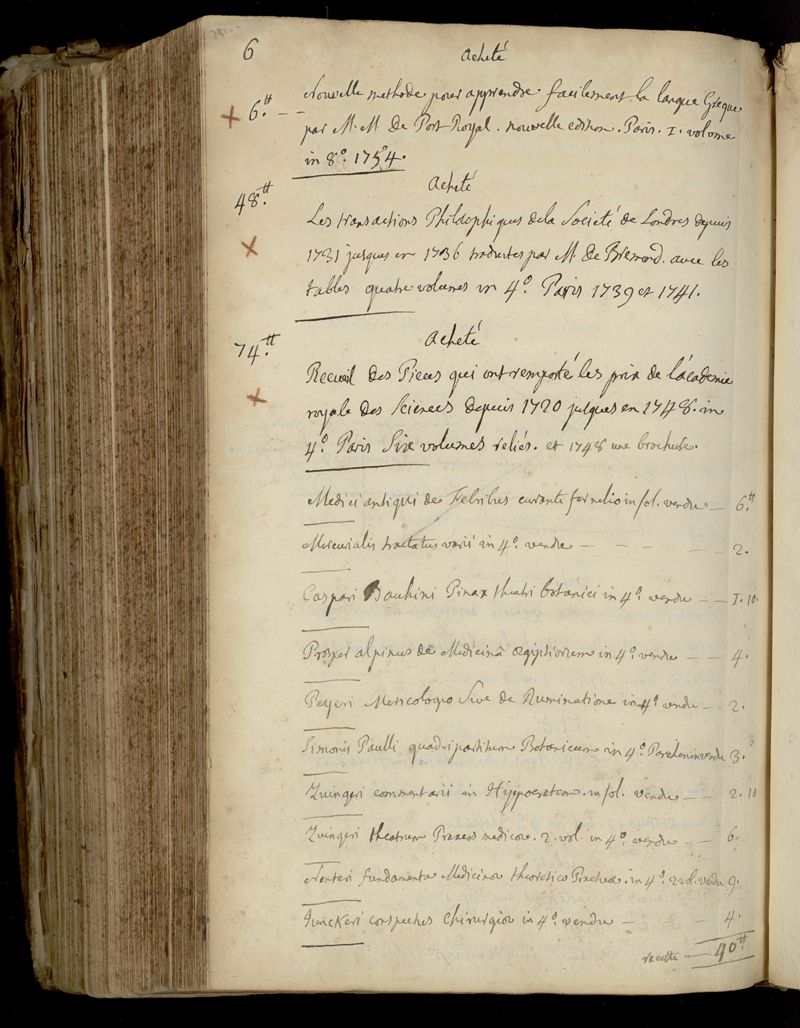 6
Acheté
6.tt - - Nouvelle methode pour apprendre facilement la langue Greque
par M. M. De Port-Royal. nouvelle edition. Paris. 1. volume
in 8.o 1754.
Acheté
48.tt
Les transactions Philosophiques dela Societé de Londres depuis
1731 jusques en 1736 traduites par M. De Bremond. avec les
tables quatre volumes in 4.o Paris 1739 et 1741.
Acheté
74.tt
Recueil des Pieces qui ont remporté les prix de l'academie
royale des Sciences depuis 1720 jusques en 1748. in
4.o Paris Six volumes reliés. et 1748 une brochure.
Medici antiqui de Febribus curante fernelio in fol. vendu — 6.tt
Mercurialis tractatus varii in 4.o vendu — — — — 2.
Caspari Bauhini Pinax theatri botanici in 4.o vendu — — 1. 10.
Prosper alpinus de Medicinâ ægiptiorum in 4.o vendu — — 4.
Peyeri Mericologio Sive de Ruminatione in 4.o vendu — 2.
Simonis Paulli quadripartitum Botanicum in 4.o vendu 3.
Zuingeri commentarii in Hyppocratem. in fol. vendu — — 2. 10
Zuingeri theatrum Praxeos medicæ. 2. vol. in 4.o vendu — — 6.
Nenteri fundamenta Medicinæ theoretico Practica. in 4.o 2 vol. vendu 9.
Junckeri conspectus Chirurgiæ in 4.o vendu — — — 4.
recette — 40tt